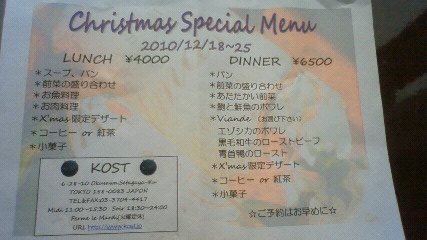 Christmas Special Menu
2010/12/18~25
LUNCH ¥4000
*スープ、パン
*前菜の盛り合わせ
*お魚料理
*お肉料理
*X'mas 限定デザート
*コーヒー or 紅茶
*小菓子
DINNER ¥6500
*パン
*前菜の盛り合わせ
*あたたかい前菜
*鮑と鮮魚のポワレ
*Viande (お選び下さい)
エゾシカのポワレ
黒毛和牛のローストビーフ
青首鴨のロースト
*X'mas 限定デザート
*コーヒー or 紅茶
*小菓子
☆ご予約はお早めに☆
KOST
6-28-10 Okusawa Setagaya-Ku
TOKYO 158-0083 JAPON
TEL&FAX:03-3704-4417
Midi 11:00~15:30 Soir 18:30~24:00
Fermé le Mardi(火曜定休)
URL http://www.kost.jp